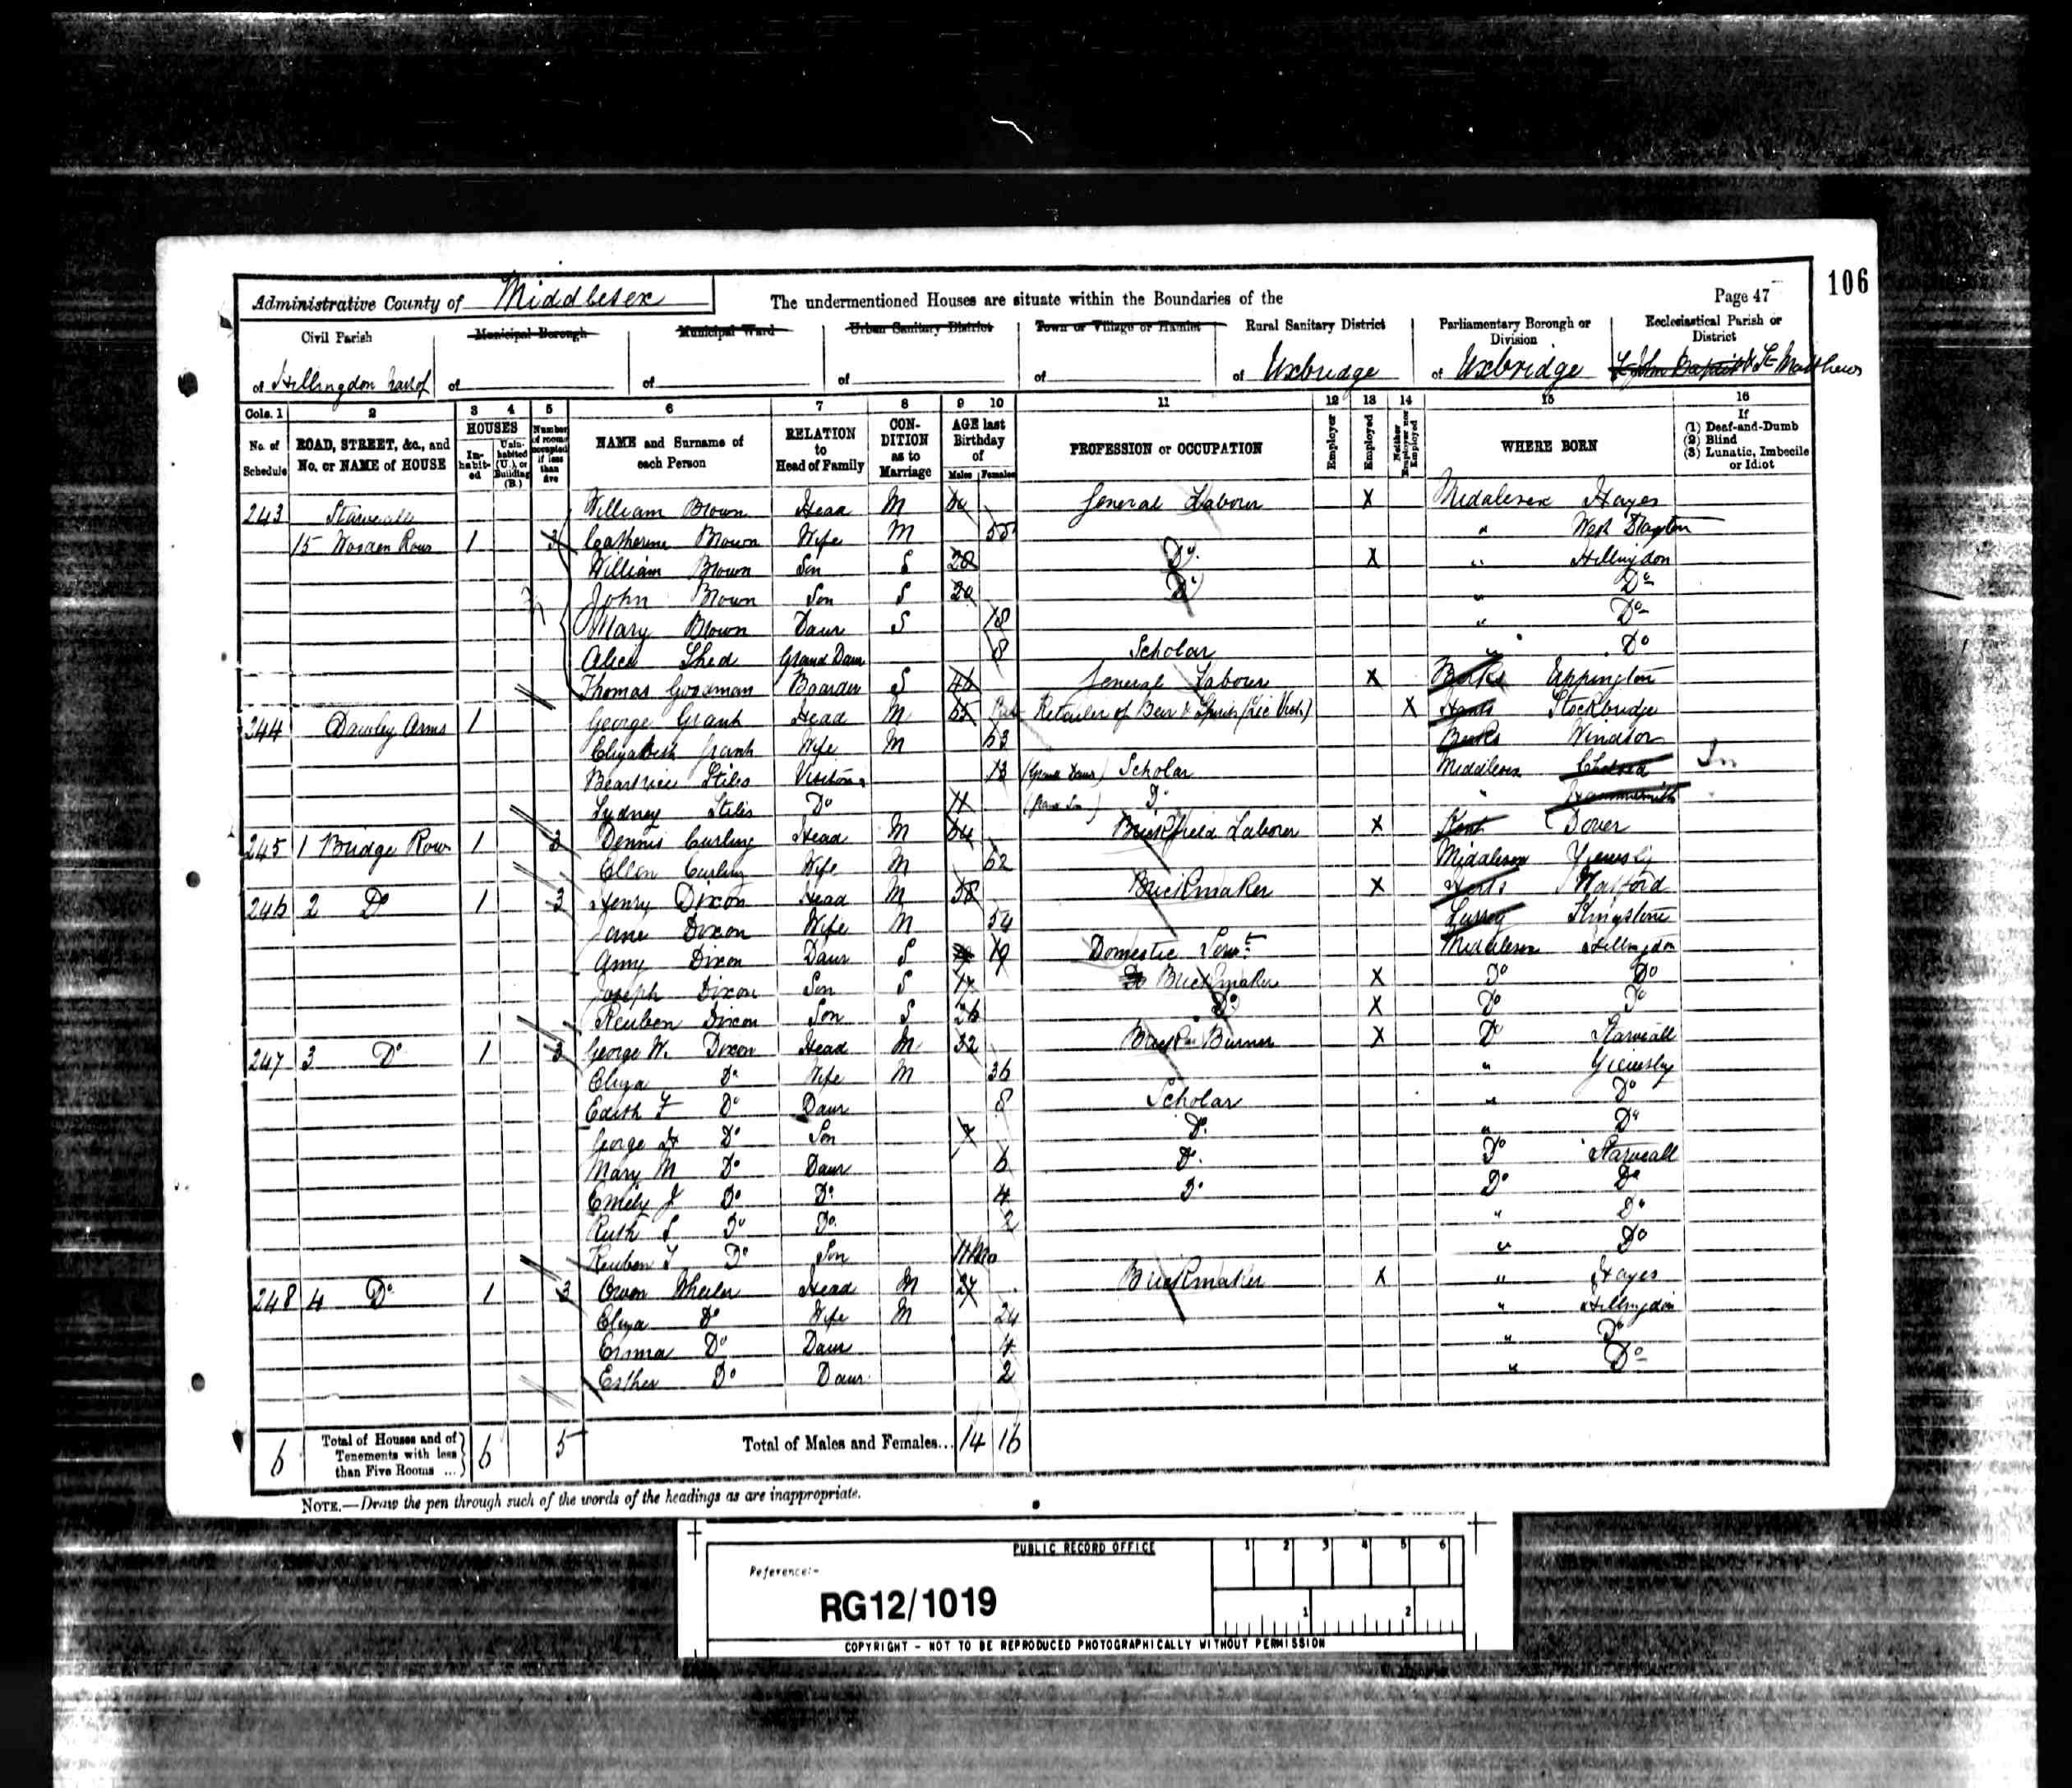 Administrative County of Middlesex The undermentioned Houses are situate within the Boundaries of the Page 47 106
Civil Parish Municipal Borough Municipal Ward Urban Sanitary District Town or Village or Hamlet Rural Sanitary District Parliamentary Borough or Division Ecclesiastical Parish or District
of Hillingdon part of of of of of of Uxbridge of Uxbridge St John Baptist St Matthews
Cols. 1 2 3 4 5 6 7 8 9 10 11 12 13 14 15 16
No. of Schedule ROAD, STREET, &c., and No. or NAME of HOUSE HOUSES In-habit-ed Unin-habited (U.), or Building (B.) Number of rooms occupied if less than five NAME and Surname of each Person RELATION to Head of Family CON-DITION as to Marriage AGE last Birthday of Males Females PROFESSION or OCCUPATION Employer Employed Neither Employer nor Employed WHERE BORN If (1) Deaf-and-Dumb (2) Blind (3) Lunatic, Imbecile or Idiot
243 Starveall William Brown Head M General Labourer X Middlesex Hayes
15 Wooden Row 1 3 Catherine Brown Wife M 55 " West Drayton
William Brown Son S 28 Do X " Hillingdon
John Brown Son S 20 Do " Do
Mary Brown Daur S 18 " Do
Alice Shed Grand Daur 8 Scholar " Do
Thomas Goodman Boarder S 46 General Labour X Berks Eppington
244 Dawley Arms 1 George Grant Head M 65 Retailer of Beer & Spirits (Lic Vict) X Hants Stockbridge
Elizabeth Grant Wife M 63 Berks Windsor
Beatrice Stiles Visitor 13 (Grand Daur) Scholar Middlesex Chelsea
Sydney Stiles Do 11 (Grand Son) Do " Hammersmith
245 1 Bridge Row 1 3 Dennis Curling Head M 64 Brickfield Laborer X Kent Dover
Ellen Curling Wife M 62 Middlesex Yiewsley
246 2 Do 1 3 Henry Dixon Head M 58 Brickmaker X Herts Watford
Jane Dixon Wife M 54 Surrey Kingstone
Amy Dixon Daur S 19 Domestic Servt Middlesex Hillingdon
Joseph Dixon Son S 17 Brickmaker X Do Do
Reuben Dixon Son S 26 Do X Do Do
247 3 Do 1 3 George W. Dixon Head M 32 Brick Burner X Do Starveall
Eliza Do Wife M 36 " Yiewsley
Edith F Do Daur 8 Scholar " Do
George H Do Son 7 Do " Do
Mary M Do Daur 6 Do Do Starveall
Emily J Do Do 4 Do Do Do
Ruth S Do Do 2 " Do
Reuben T Do Son 11 Mo " Do
248 4 Do 1 3 Owen Wheeler Head M 27 Brickmaker X " Hayes
Eliza Do Wife M 24 " Hillingdon
Emma Do Daur 4 " Do
Esther Do Daur 2 " Do
6 Total of Houses and of Tenements with less than Five Rooms ... 6 5 Total of Males and Females... 14 16
NOTE.—Draw the pen through such of the words of the headings as are inappropriate.
PUBLIC RECORD OFFICE 1 2 3 4 5 6
Reference:-
RG12/1019 1 2
COPYRIGHT - NOT TO BE REPRODUCED PHOTOGRAPHICALLY WITHOUT PERMISSION